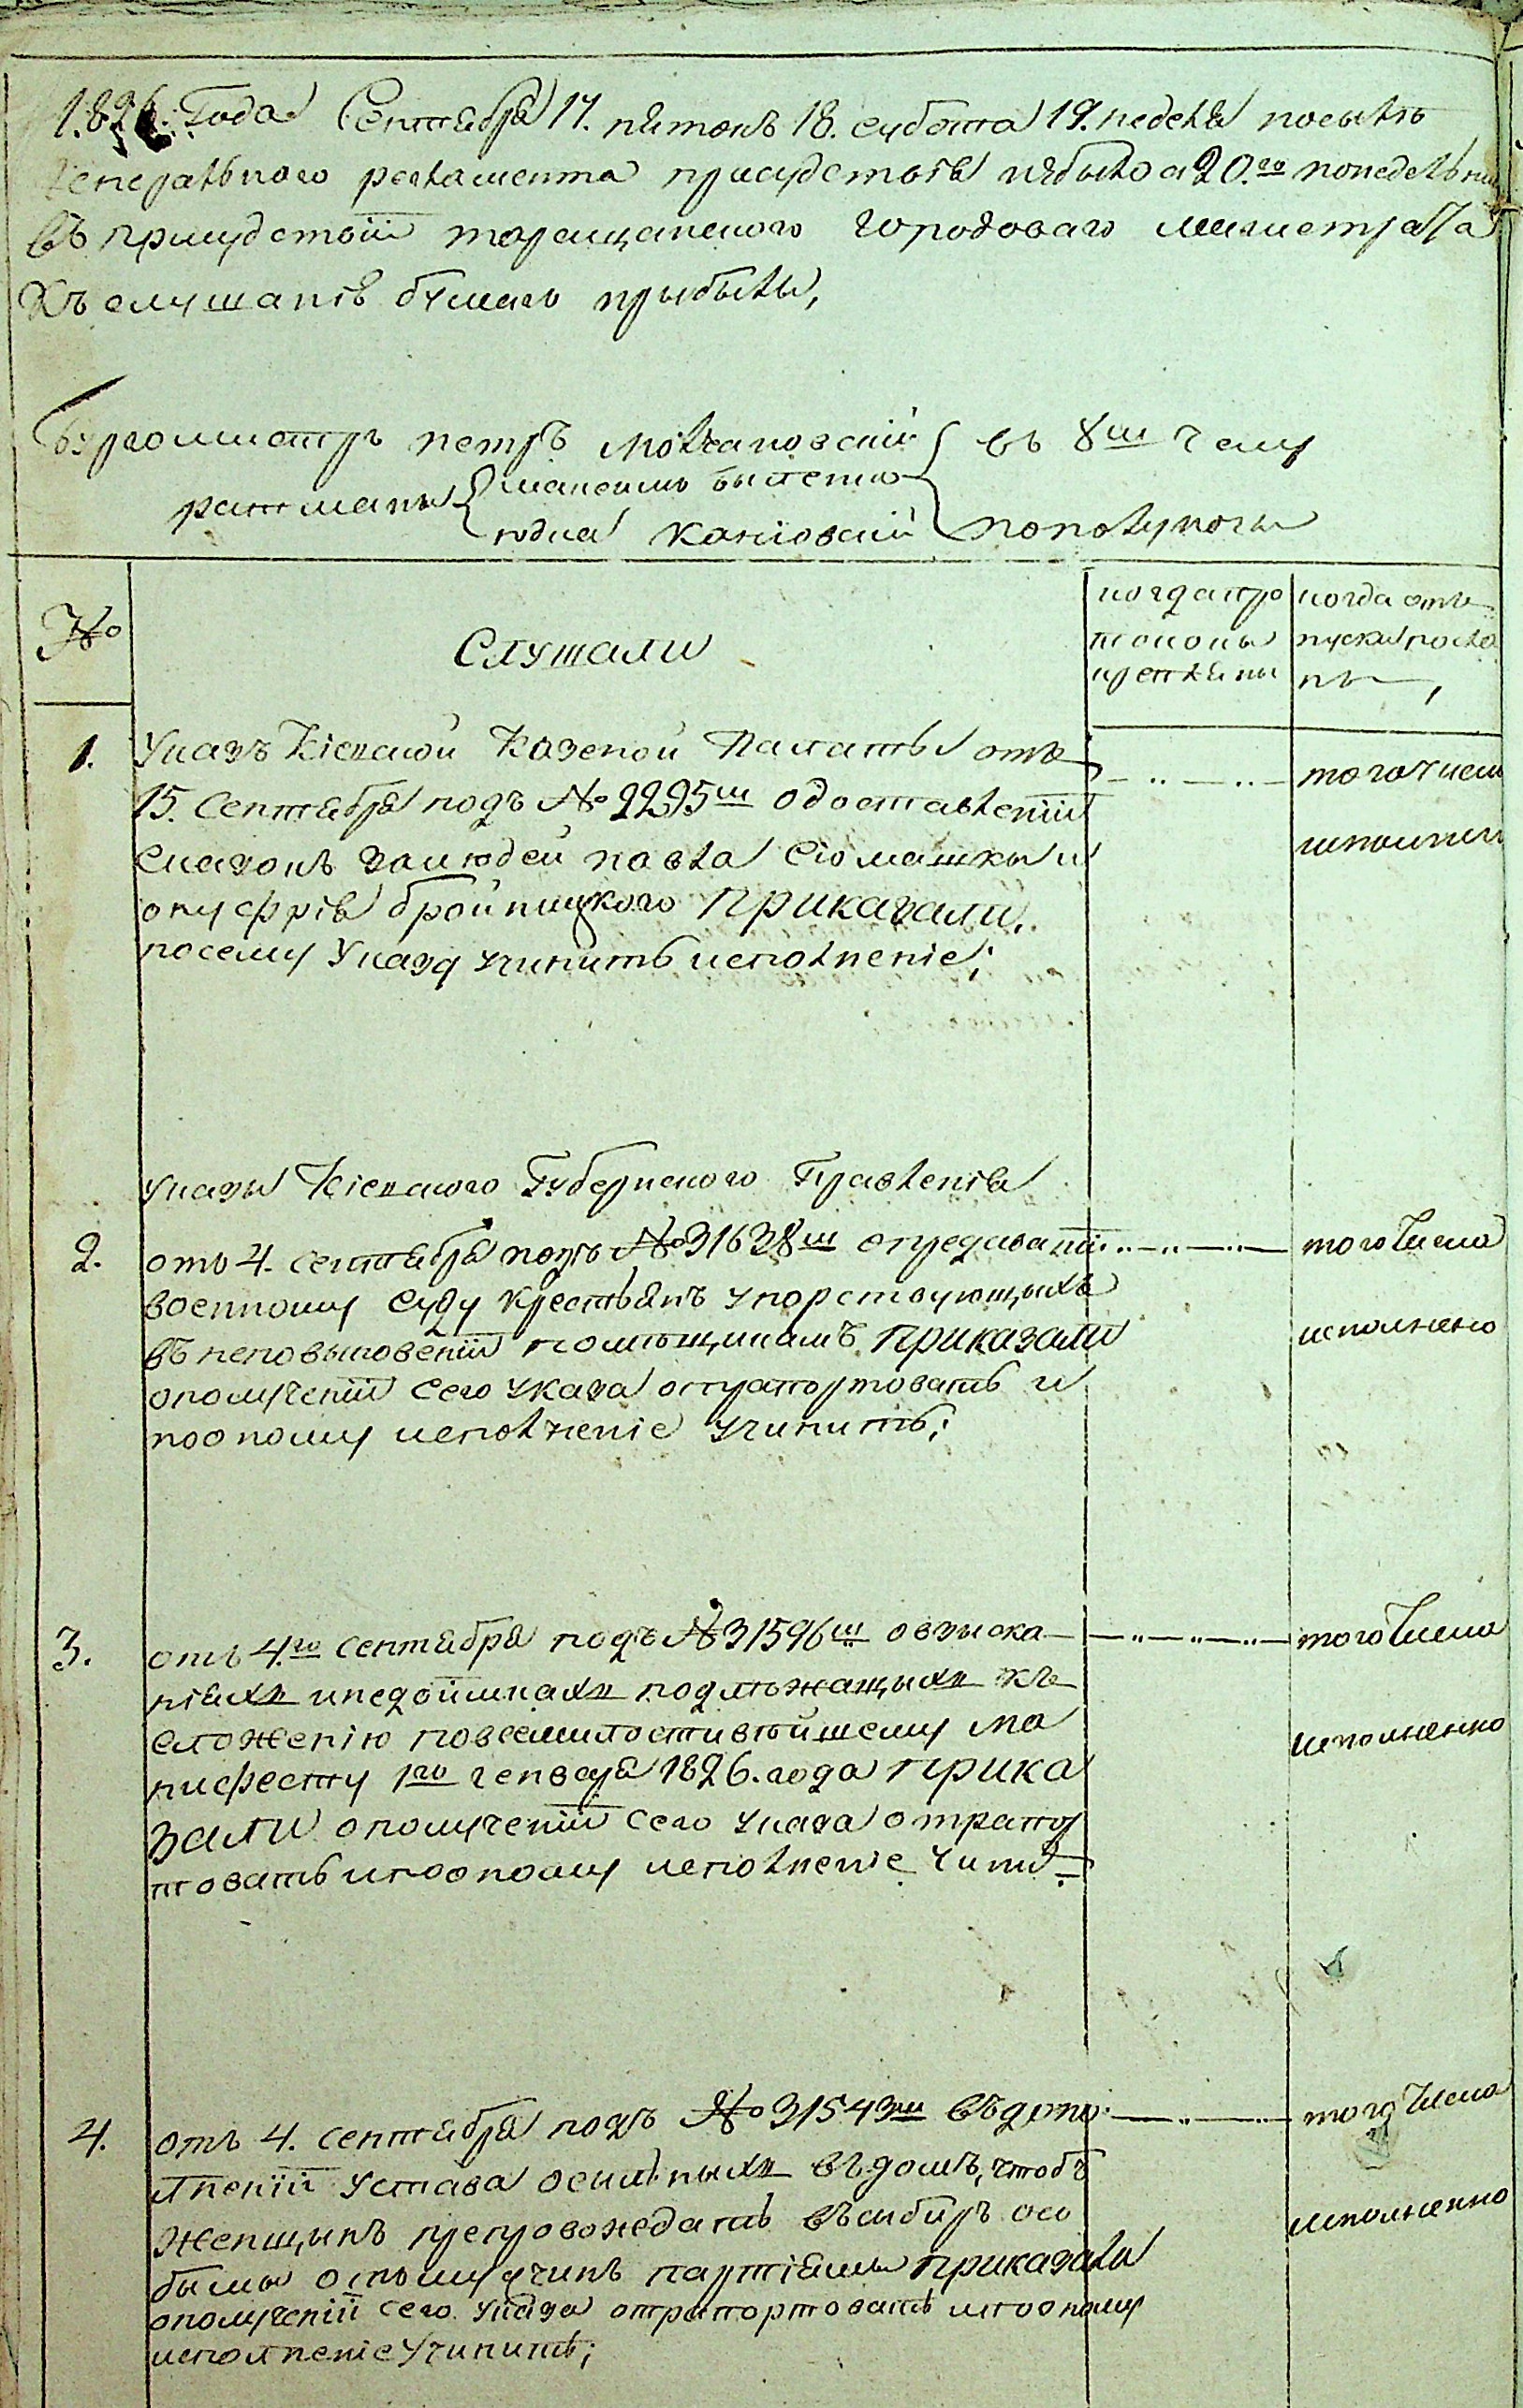 1826. Года Сентября 17. пятокъ 18. субота 19. неделя посылѣ
Генерального регламента присудствія небыло а 20.го понедельник
въ присудствіи таращанского городоваго магистрата
къ слушанію бумагъ прибыли,
Бургомистръ петръ Молчановскій в 8м часу
ратманы максимъ
юдка каніовскій пополуночи
№
Слушали
когда про
токолы
крепляны
когда отъ
пуски посла
ны,
1. Указъ Кіевской Казеной Палаты отъ
15. Сентября подъ № 2295м одоставленіи
сказокъ залюдей павла Сіомашки и
онуфрія бройницкого приказали.
посему Указу учинить исполненіе;
того числа
исполнен
Указы Кіевского Губернского Правленія
2. отъ 4. сентября подъ № 31638м опредаваніи
военному суду крестьянъ упорствующыхъ
въ неповыновеніи помѣщикамъ приказали
ополученіи сего указа отрапортовать и
пооному исполненіе учинить;
того числа
исполнено
3. отъ 4.го сентября подъ № 31596м овзыска
ніяхъ инедоимкахъ подлѣжащыхъ къ
сложенію повсемилостивѣйшему ма
нифесту 1го генваря 1826. года прика
зали ополученіи сего указа отрапор
товать ипооному исполненіе чинит
того числа
исполненно
4. отъ 4. сентября подъ № 31543м въдопо
лненіи устава осылѣныхъ въдомъ, чтобъ
женщинъ препровождать въсибиръ осо
быми отъмущинъ партіямы приказали
ополученіи сего указа отрапортовать ипооному
исполненіе учинить;
того числа
исполненно